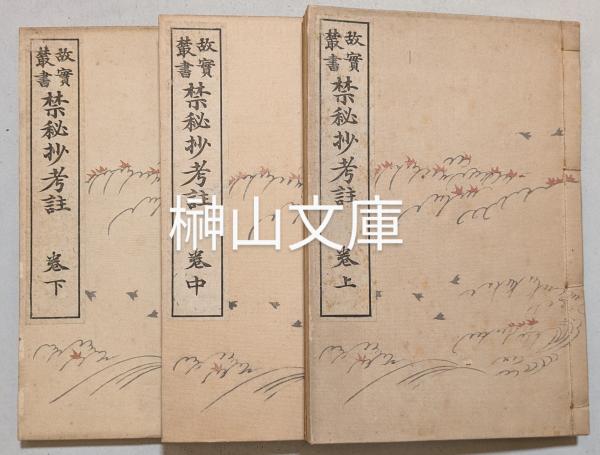 故實叢書
禁秘抄考註 卷上
故實叢書
禁秘抄考註 卷中
故實叢書
禁秘抄考註 卷下
榊山文庫